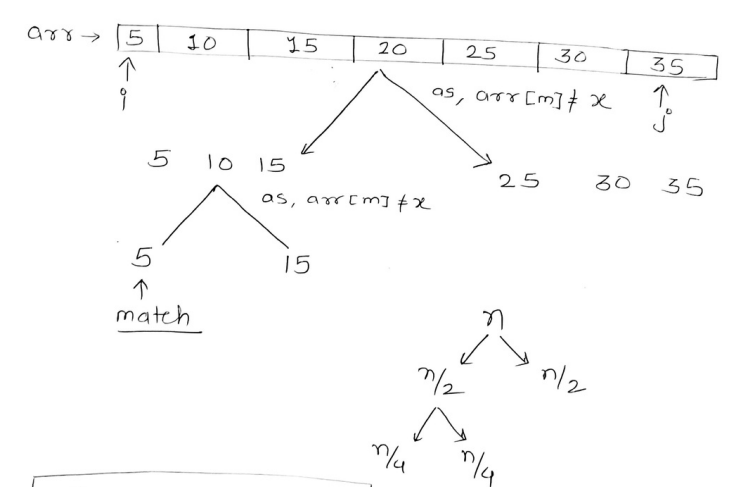 arr → 5 10 15 20 25 30 35
i
j
as, arr[m] ≠ x
5 10 15
25 30 35
as, arr[m] ≠ x
5 15
match
n
n/2 n/2
n/4 n/4